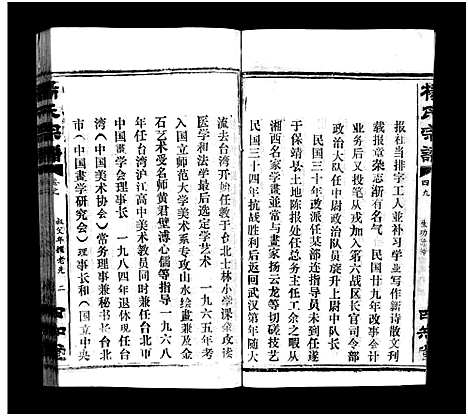 楊氏宗譜
四九
报社当排字工人並补习学业写作新诗散文刊
载报章荣志渐有名气 民国廿九年改事会计
业务后又投笔从戎加入第六战区长官司令部
政治大队任中尉政治队员旋升上尉中队长
民国三十年改派任某部连指导员未到任遂
于保靖县土地陈报处任总务主任工余之暇与
湘西名家学画並常与画家扬云龙等切磋技艺
民国三十四年抗战胜利后返回武汉第年随大
四知堂
流去台湾开始任教于台北士林小学课余攻读
医学和法学最后选定学艺术 一九六五年考
入国立师范大学美术系专攻山水绘画兼及金
石艺术受名师黄君璧溥心儒等指导 一九六八
年任台湾沪江高中美术教员同时兼任台北市
中国画学会理事长 一九八四年退休现任台
湾（中国美术协会）常务理事兼秘书长台北
市（中国画学研究会）理事长和（国立中央
楊氏宗譜
二
四知堂